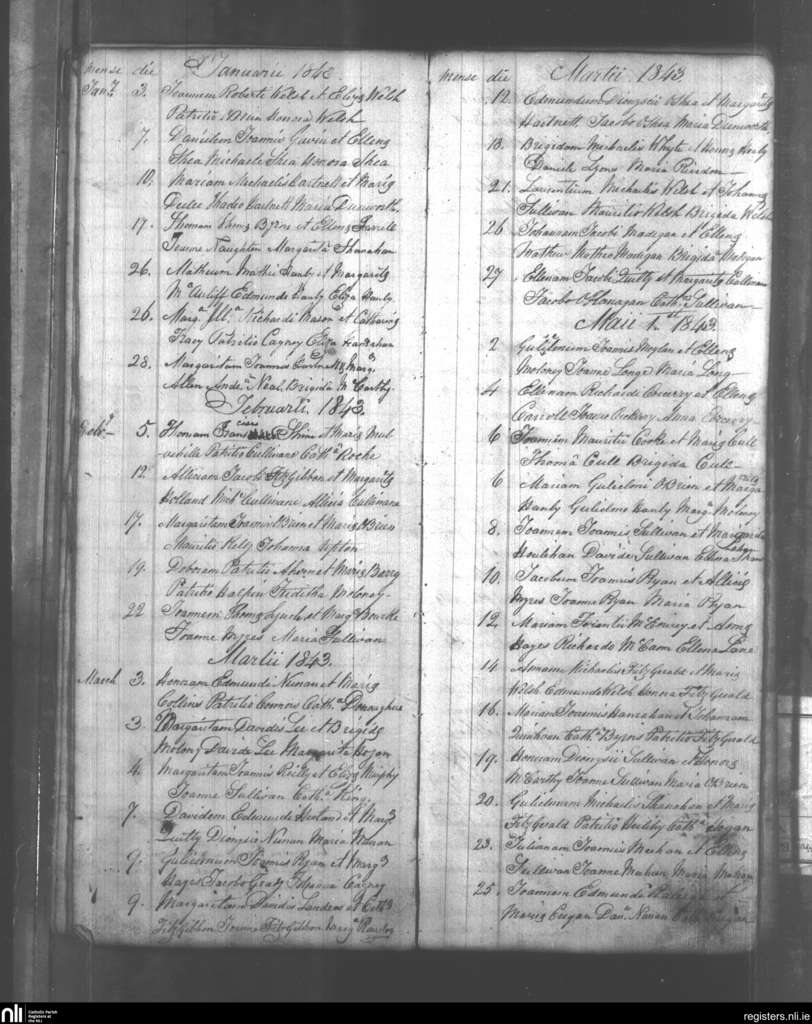 mense die Januarii 1843
Jany 3. Joannem Roberti Welsh et Eliza Welsh
Patritio Honora Welsh
7. Danielem Joannis Gavin et Ellena
Shea Michaele Shea Honora Shea
10. Mariam Michaelis Hartnett et Maria
Hartnett Maria Dunworth
17. Thomam Thoma Byrne et Ellena Farrell
Joanne Naughton Margarita Shanahan
26. Matheum Mathei Hanly et Margarita
McAuliff Edmundo Hanly Eliza Hanly
26. Richardi Mason et Catharina
Tracy Patritio Cagney Eliza Hanrahan
28. Margaritam Joannis Hartnett Marga
Allen Neal Brigida McCarthy
Februarii. 1843.
5. Honoram Shine et Maria Mul
Patritio Cullinane Catha Roche
12. Alliciam Jacobi FitzGibbon et Margarita
Holland Cullinane Allicia Cullinane
17. Margaritam et Maria OBrien
Mauritio Johanna Upton
19. Deboram Patritii Ahern et Maria Barry
Patritio Halpin Moloney
22 Joannem Thoma Lynch et Marga Bourke
Joanne Myres Maria Sullivan
Martii 1843.
March 3. Honoram Edmundi Nunan et Maria
Collins Patritio Connors Catha Donaghue
3 Margaritam Davidis Lee et Brigida
Molony Davide Lee Margarita Hogan
4. Margaritam Joannis Reilly et Eliza Murphy
Joanne Sullivan Catha King
7. Davidem Edmundi et Marga
Quilty Dionysio Nunan Maria Nunan
9. Gulielmum Thoma Ryan et Marga
Hayes Jacobo Cagney
9. Margaritam Davidis Landers et Catha
FitzGibbon Joanne FitzGibbon
mense die Martii 1843
12. Edmundum Dionysii OShea et Margarita
Hartnett Jacobo OShea Maria Dunworth
13. Brigidam Michaelis Whyte et Hanly
Daniele Lyons Maria Riordan
21. Laurentium Michaelis Welsh et Johanna
Sullivan Mauritio Welsh Brigida Welsh
26 Johannam Jacobi Madigan et Ellena
Mathew Matheo Madigan Brigida Madigan
27 Ellenam Jacobi Quilty et Margarita
Jacobo Flanagan Catha Sullivan
Maii 1st 1843.
2 Gulielmum Joannis Moylan et Ellena
Moloney Joanne Long Maria Long
4 Ellenam Richardi Corcery et Ellena
Carroll Anna Corcery
6 Joannem Mauritii Cooke et Maria Cull
Thomā Cull Brigida Cull
6 Mariam Gulielmi OBrien et Marga
Hanly Gulielmo Hanly Marga Molony
8. Joannem Joannis Sullivan et Margarita
Houlahan Davide Sullivan Ellena Shea
10. Jacobum Joannis Ryan et Allicia
Myres Joanne Ryan Maria Ryan
12. Mariam et Anna
Hayes Richardo McCam Ellena Lane
14 Annam Michaelis FitzGerald et Maria
Welsh Edmundo Welsh Honora FitzGerald
16. Mariam Joannis Hanrahan et Johannam
Quinlivan Catha Byrns Patritio FitzGerald
19. Honoram Dionysii Sullivan et Honora
McCarthy Joanne Sullivan Maria OBrien
20. Gulielmum Michaelis Shanahan et Maria
FitzGerald Patritio Catha Hogan
23. Julianam Joannis Meehan et Ellena
Sullivan Joanne Mehan Maria Mehan
25. Joannem Edmundi et
Maria Eugan Danl Nunan
nli Catholic Parish
Registers at
the NLI
registers.nli.ie